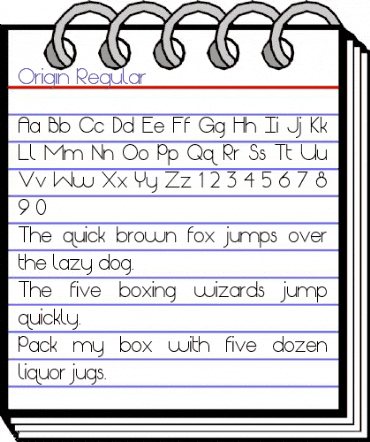 Origin Regular
Aa Bb Cc Dd Ee Ff Gg Hh Ii Jj Kk
Ll Mm Nn Oo Pp Qq Rr Ss Tt Uu
Vv Ww Xx Yy Zz 1 2 3 4 5 6 7 8
9 0
The quick brown fox jumps over
the lazy dog.
The five boxing wizards jump
quickly.
Pack my box with five dozen
liquor jugs.